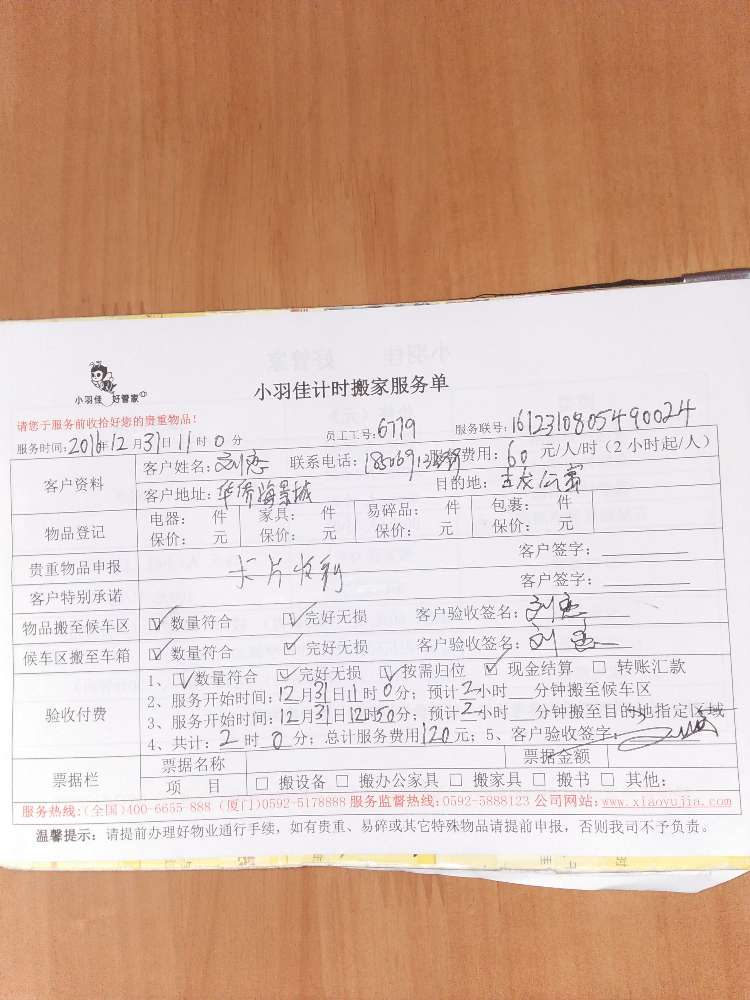 小羽佳 好管家
小羽佳计时搬家服务单
请您于服务前收拾好您的贵重物品!
服务时间:2016年12月31日11时0分 员工工号:6779 服务联号:1612310805490024
客户资料
客户姓名:刘恋 联系电话: 服务费用:60元/人/时(2小时起/人)
客户地址:华侨海景城 目的地:
物品登记
电器: 件 家具: 件 易碎品: 件 包裹: 件
保价: 元 保价: 元 保价: 元 保价: 元
贵重物品申报 客户签字:
客户特别承诺 卡片收到 客户签字:
物品搬至候车区 ☑数量符合 ☑完好无损 客户验收签名:刘恋
候车区搬至车箱 ☑数量符合 ☑完好无损 客户验收签名:刘恋
验收付费
1、☑数量符合 ☑完好无损 ☑按需归位 ☑现金结算 □转账汇款
2、服务开始时间:12月31日11时0分;预计2小时 分钟搬至候车区
3、服务开始时间:12月31日12时50分;预计2小时 分钟搬至目的地指定区域
4、共计:2时0分;总计服务费用120元;5、客户验收签字:
票据栏
票据名称 票据金额
项 目 □搬设备 □搬办公家具 □搬家具 □搬书 □其他:
服务热线:(全国)400-6655-888 (厦门)0592-5178888 服务监督热线:0592-5888123 公司网站:www.xiaoyujia.com
温馨提示:请提前办理好物业通行手续,如有贵重、易碎或其它特殊物品请提前申报,否则我司不予负责。